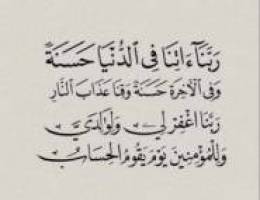 رَبَّنَا ءَاتِنَا فِي ٱلدُّنْيَا حَسَنَةً
وَفِي ٱلْآخِرَةِ حَسَنَةً وَقِنَا عَذَابَ النَّارِ
رَبَّنَا اغْفِرْ لِي وَلِوَالِدَيَّ
وَلِلْمُؤْمِنِينَ يَوْمَ يَقُومُ الْحِسَابُ